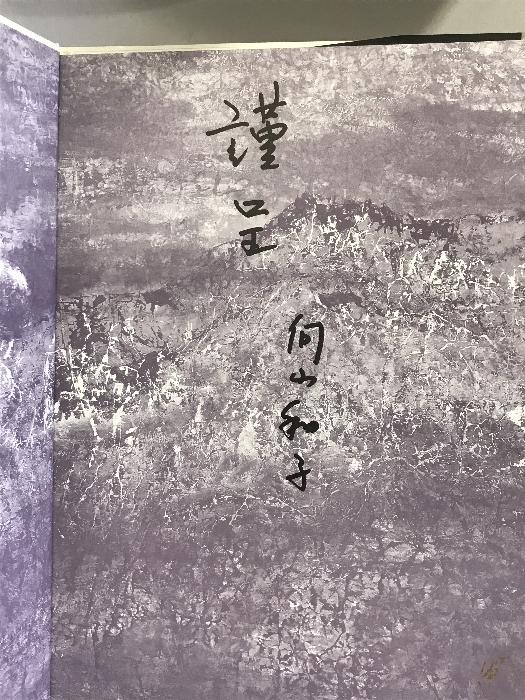 謹呈
向山和子